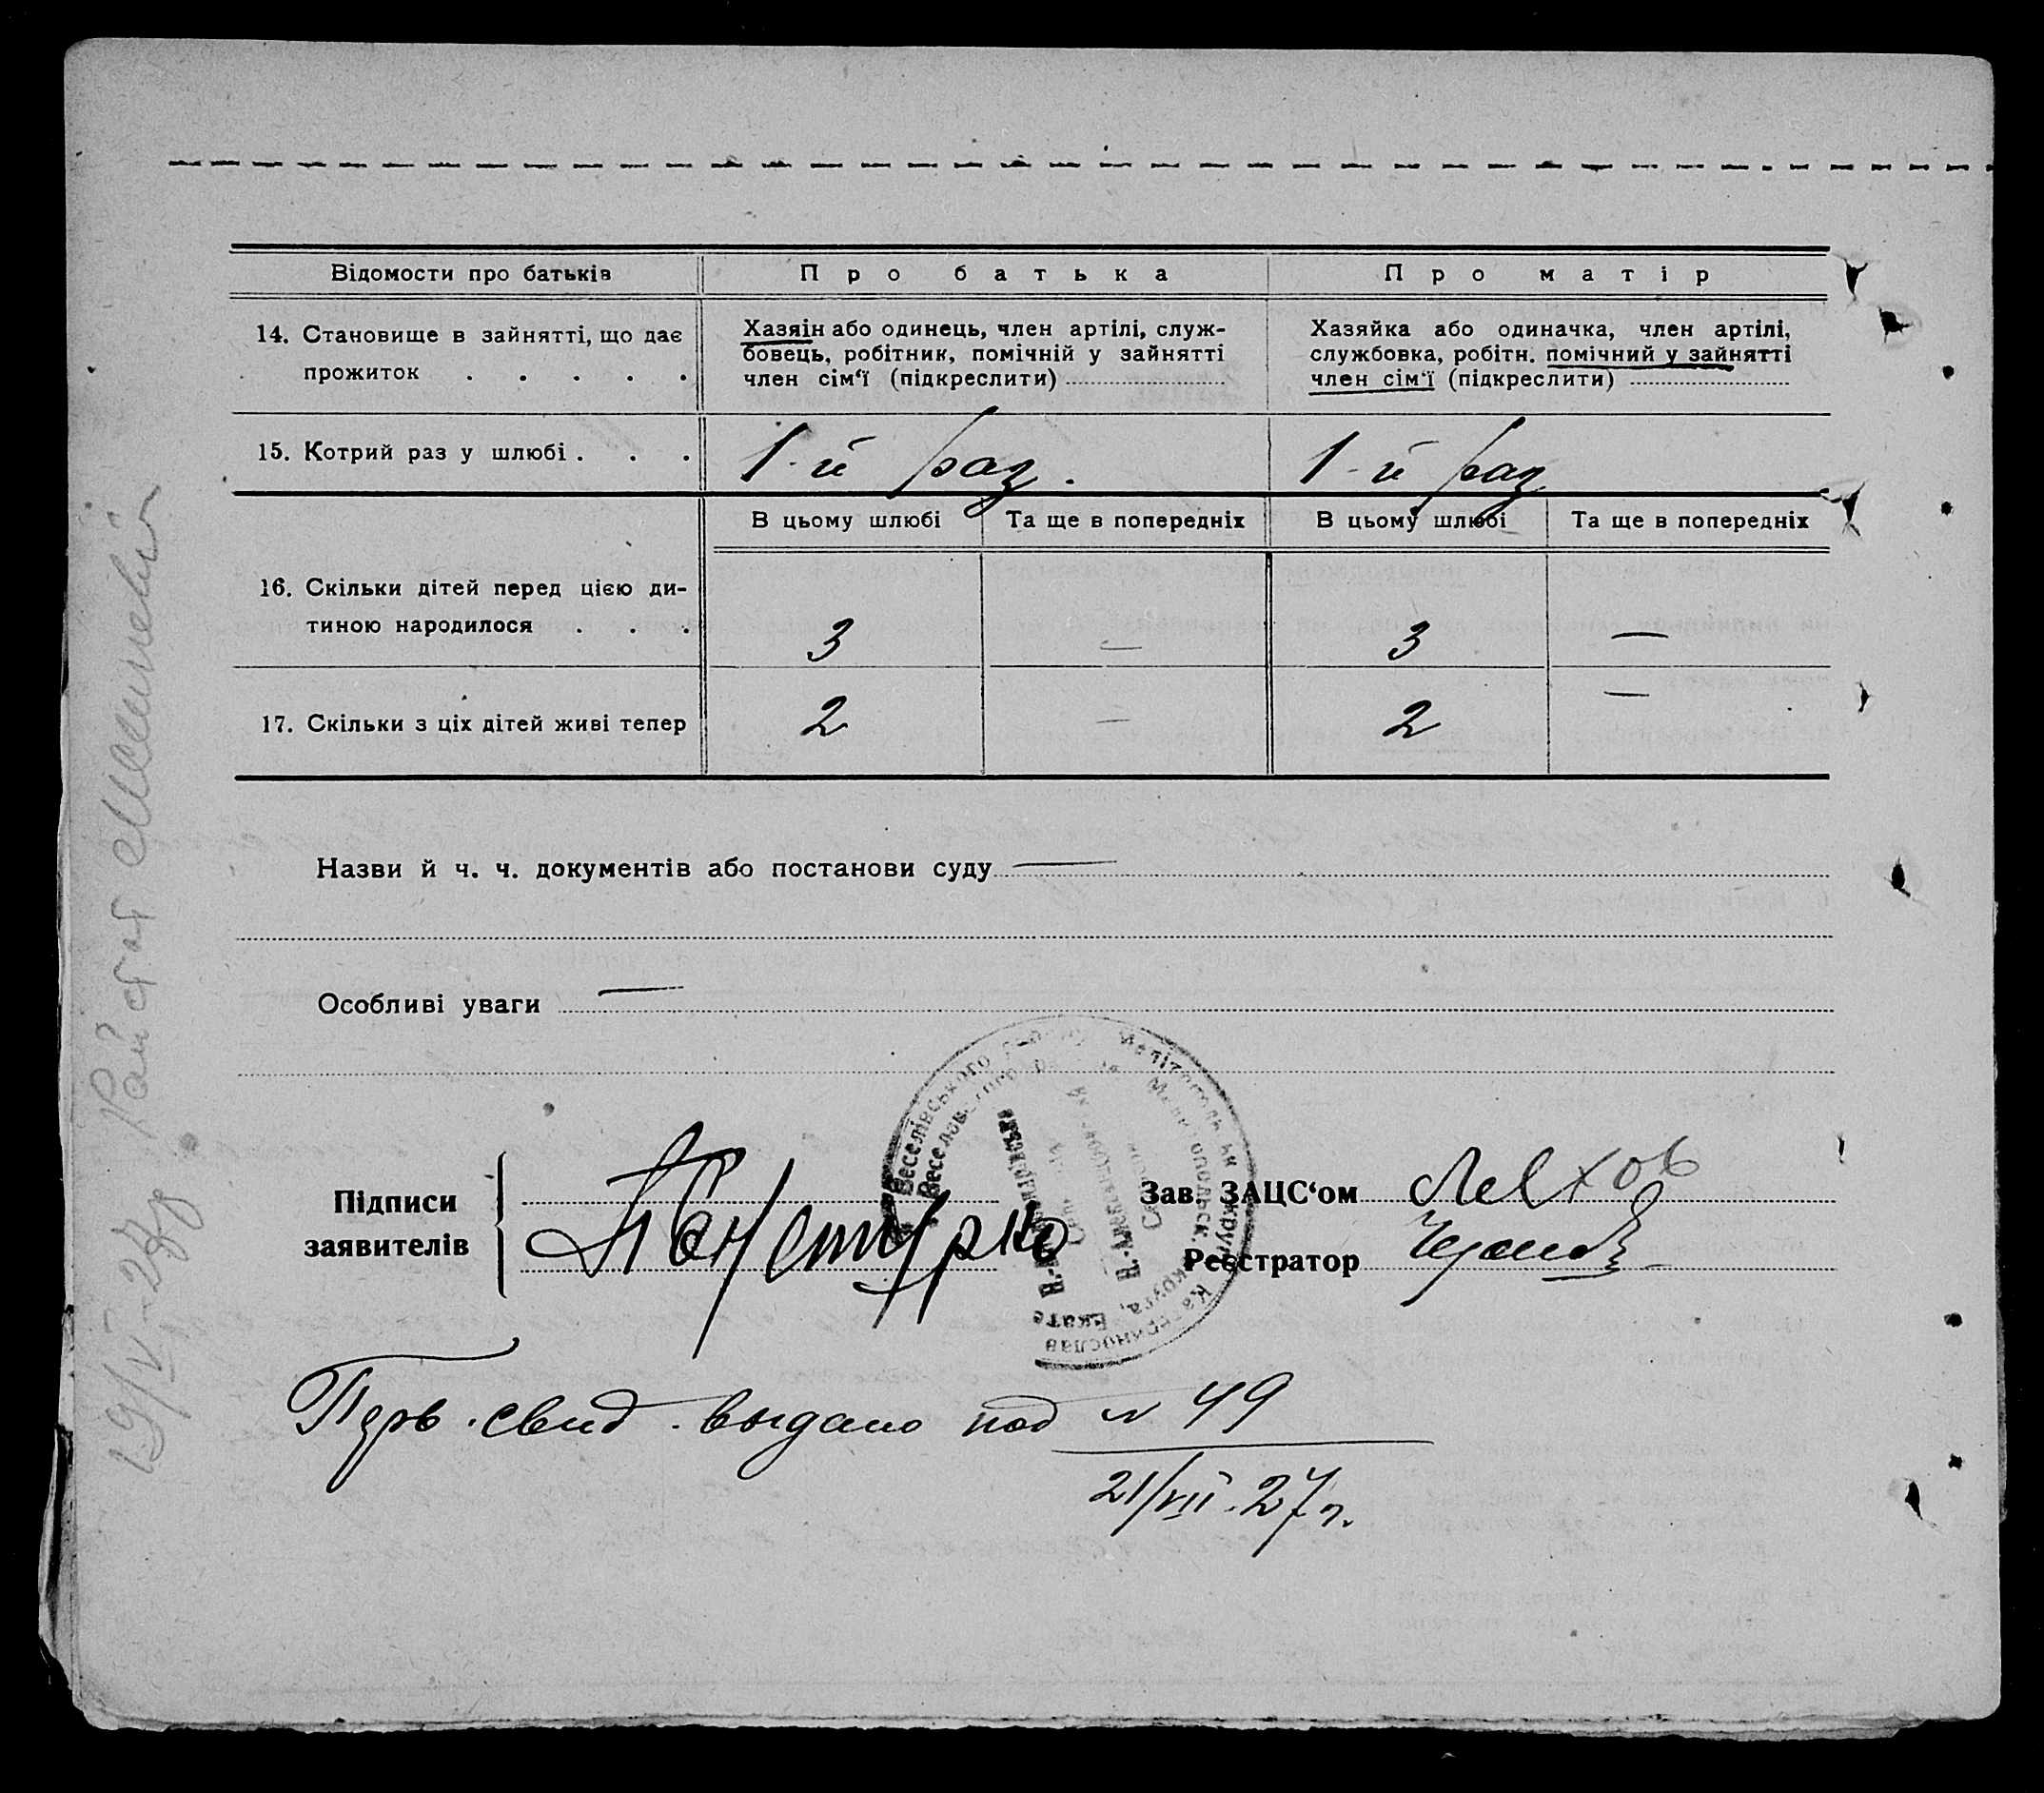 Відомости про батьків Про батька Про матір
14. Становище в зайнятті, що дає
прожиток . . . . .
Хазяїн або одинець, член артілі, служ-
бовець, робітник, помічній у зайнятті
член сім‘ї (підкреслити)
Хазяйка або одиначка, член артілі,
службовка, робітн. помічний у зайнятті
член сім‘ї (підкреслити)
15. Котрий раз у шлюбі . . . 1-й раз. 1-й раз
В цьому шлюбі Та ще в попередніх В цьому шлюбі Та ще в попередніх
16. Скільки дітей перед цією ди-
тиною народилося . . . 3 — 3 —
17. Скільки з ціх дітей живі тепер 2 — 2 —
Назви й ч. ч. документів або постанови суду —
Особливі уваги —
Підписи
заявителів
Зав. ЗАЦС‘ом
Реєстратор
Веселівського Мелітопольськ
Катеринослав
свид. выдано под № 49
21/VII-27 г.
19/V-27 г